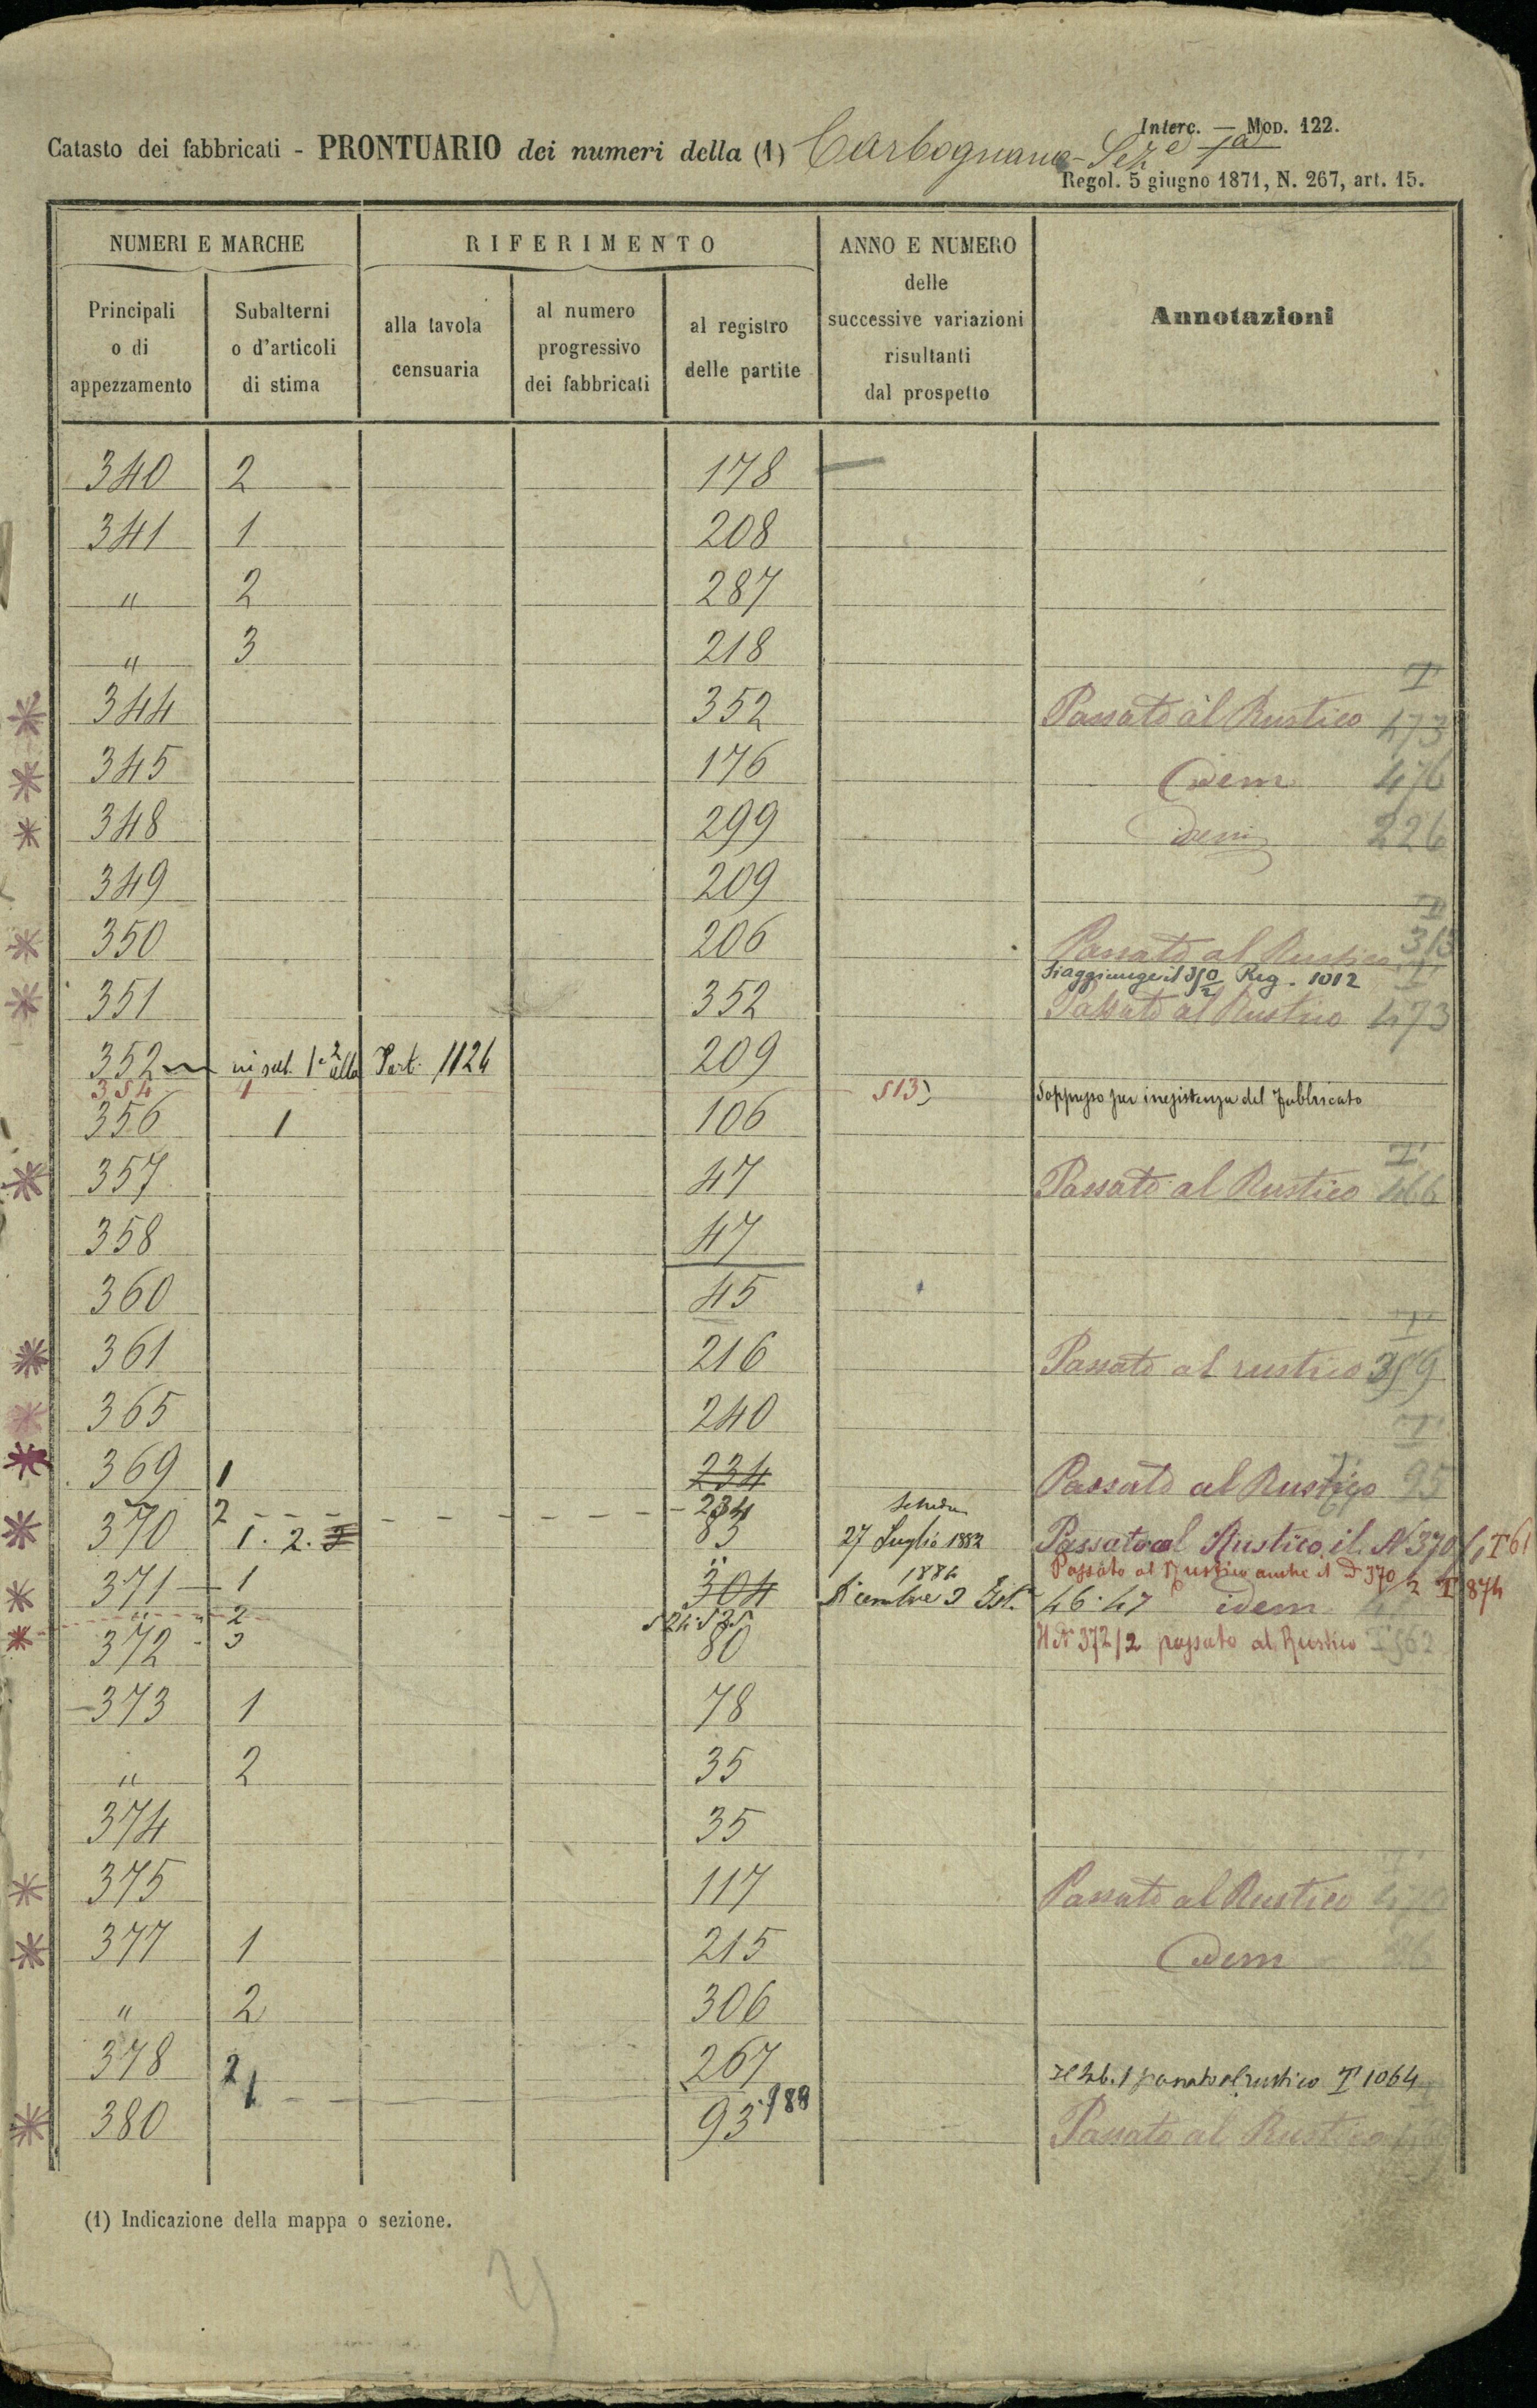 Interc. — Mod. 122.
Catasto dei fabbricati - PRONTUARIO dei numeri della (1) Carbognano - Sez.e 1a
Regol. 5 giugno 1871, N. 267, art. 15.
NUMERI E MARCHE RIFERIMENTO ANNO E NUMERO delle successive variazioni risultanti dal prospetto Annotazioni
Principali o di appezzamento Subalterni o d'articoli di stima alla tavola censuaria al numero progressivo dei fabbricati al registro delle partite
340 2 178
341 1 208
" 2 287
" 3 218
344 352 Passato al Rustico T 473
345 176 Idem 476
348 299 idem 226
349 209
350 206 Passato al Rustico T 313
Si aggiunge il 350/2 Reg. 1012
351 352 Passato al Rustico T 473
352 1 2 alla Part. 1124 209
354 1 513) Soppresso per inesistenza del fabbricato
356 1 106
357 47 Passato al Rustico T 466
358 47
360 45
361 216 Passato al rustico T 359
365 240
369 1 234 Passato al Rustico T 95
2 - 234
370 1. 2. 3 85 Scheda 27 Luglio 1882 Passato al Rustico il N 370/1 T 61
Passato al Rustico anche il N 370/2 T 874
371 1 304 1886 Dicembre 2 Est. 46.47 idem
" 2 524.525
372 3 80 Il N 372/2 passato al Rustico T 562
373 1 78
" 2 35
374 35
375 117 Passato al Rustico
377 1 215 Idem
" 2 306
378 2 267 Il sub. 1 passato al rustico T 1064
1 188
380 93 Passato al Rustico
(1) Indicazione della mappa o sezione.